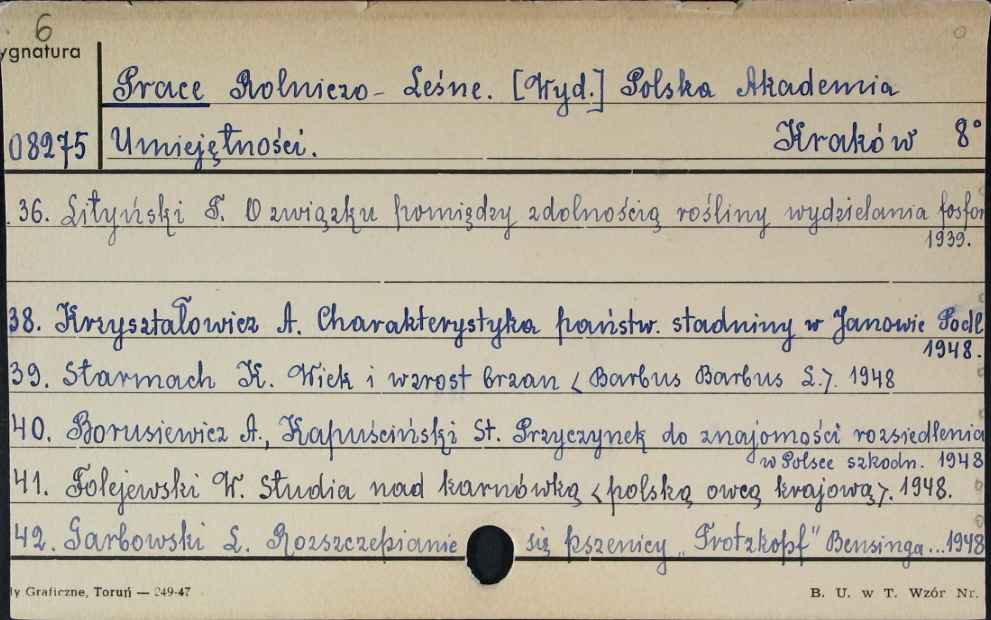 6
ygnatura
Prace Rolniczo- Leśne. [Wyd.] Polska Akademia
08275 Umiejętności. Kraków 8°
36. Lityński T. O związku pomiędzy zdolnością rośliny wydzielania fosfor
1939.
38. Krzyształowicz A. Charakterystyka państw. stadniny w Janowie Podl
1948.
39. Starmach K. Wiek i wzrost brzan <Barbus Barbus L.>. 1948
40. Borusiewicz A., Kapuściński St. Przyczynek do znajomości rozsiedlenia
w Polsce szkodn. 1948
41. Folejewski W. Studia nad karnówką <polską owcą krajową>. 1948.
42. Garbowski L. Rozszczepianie się pszenicy „Trotzkopf" Bensinga...1948
ły Graficzne, Toruń — 249-47 B. U. w T. Wzór Nr.